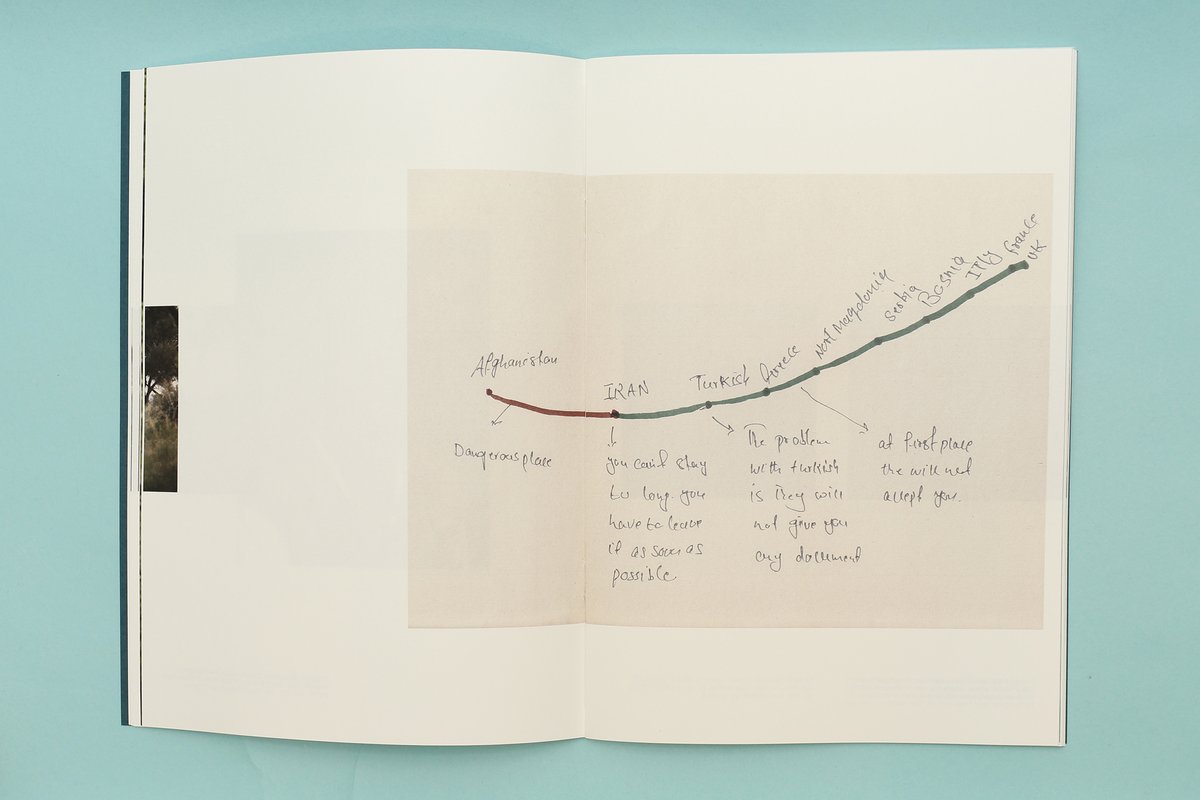 Afghanistan
IRAN
Turkish
Greece
Nort Maqdonia
Serbia
Bosnia
ITly
france
UK
Dangerous place
you can't stay
to long. you
have to leave
it as soon as
possible.
The problem
with turkish
is They will
not give you
any document
at first place
the will not
accept you.